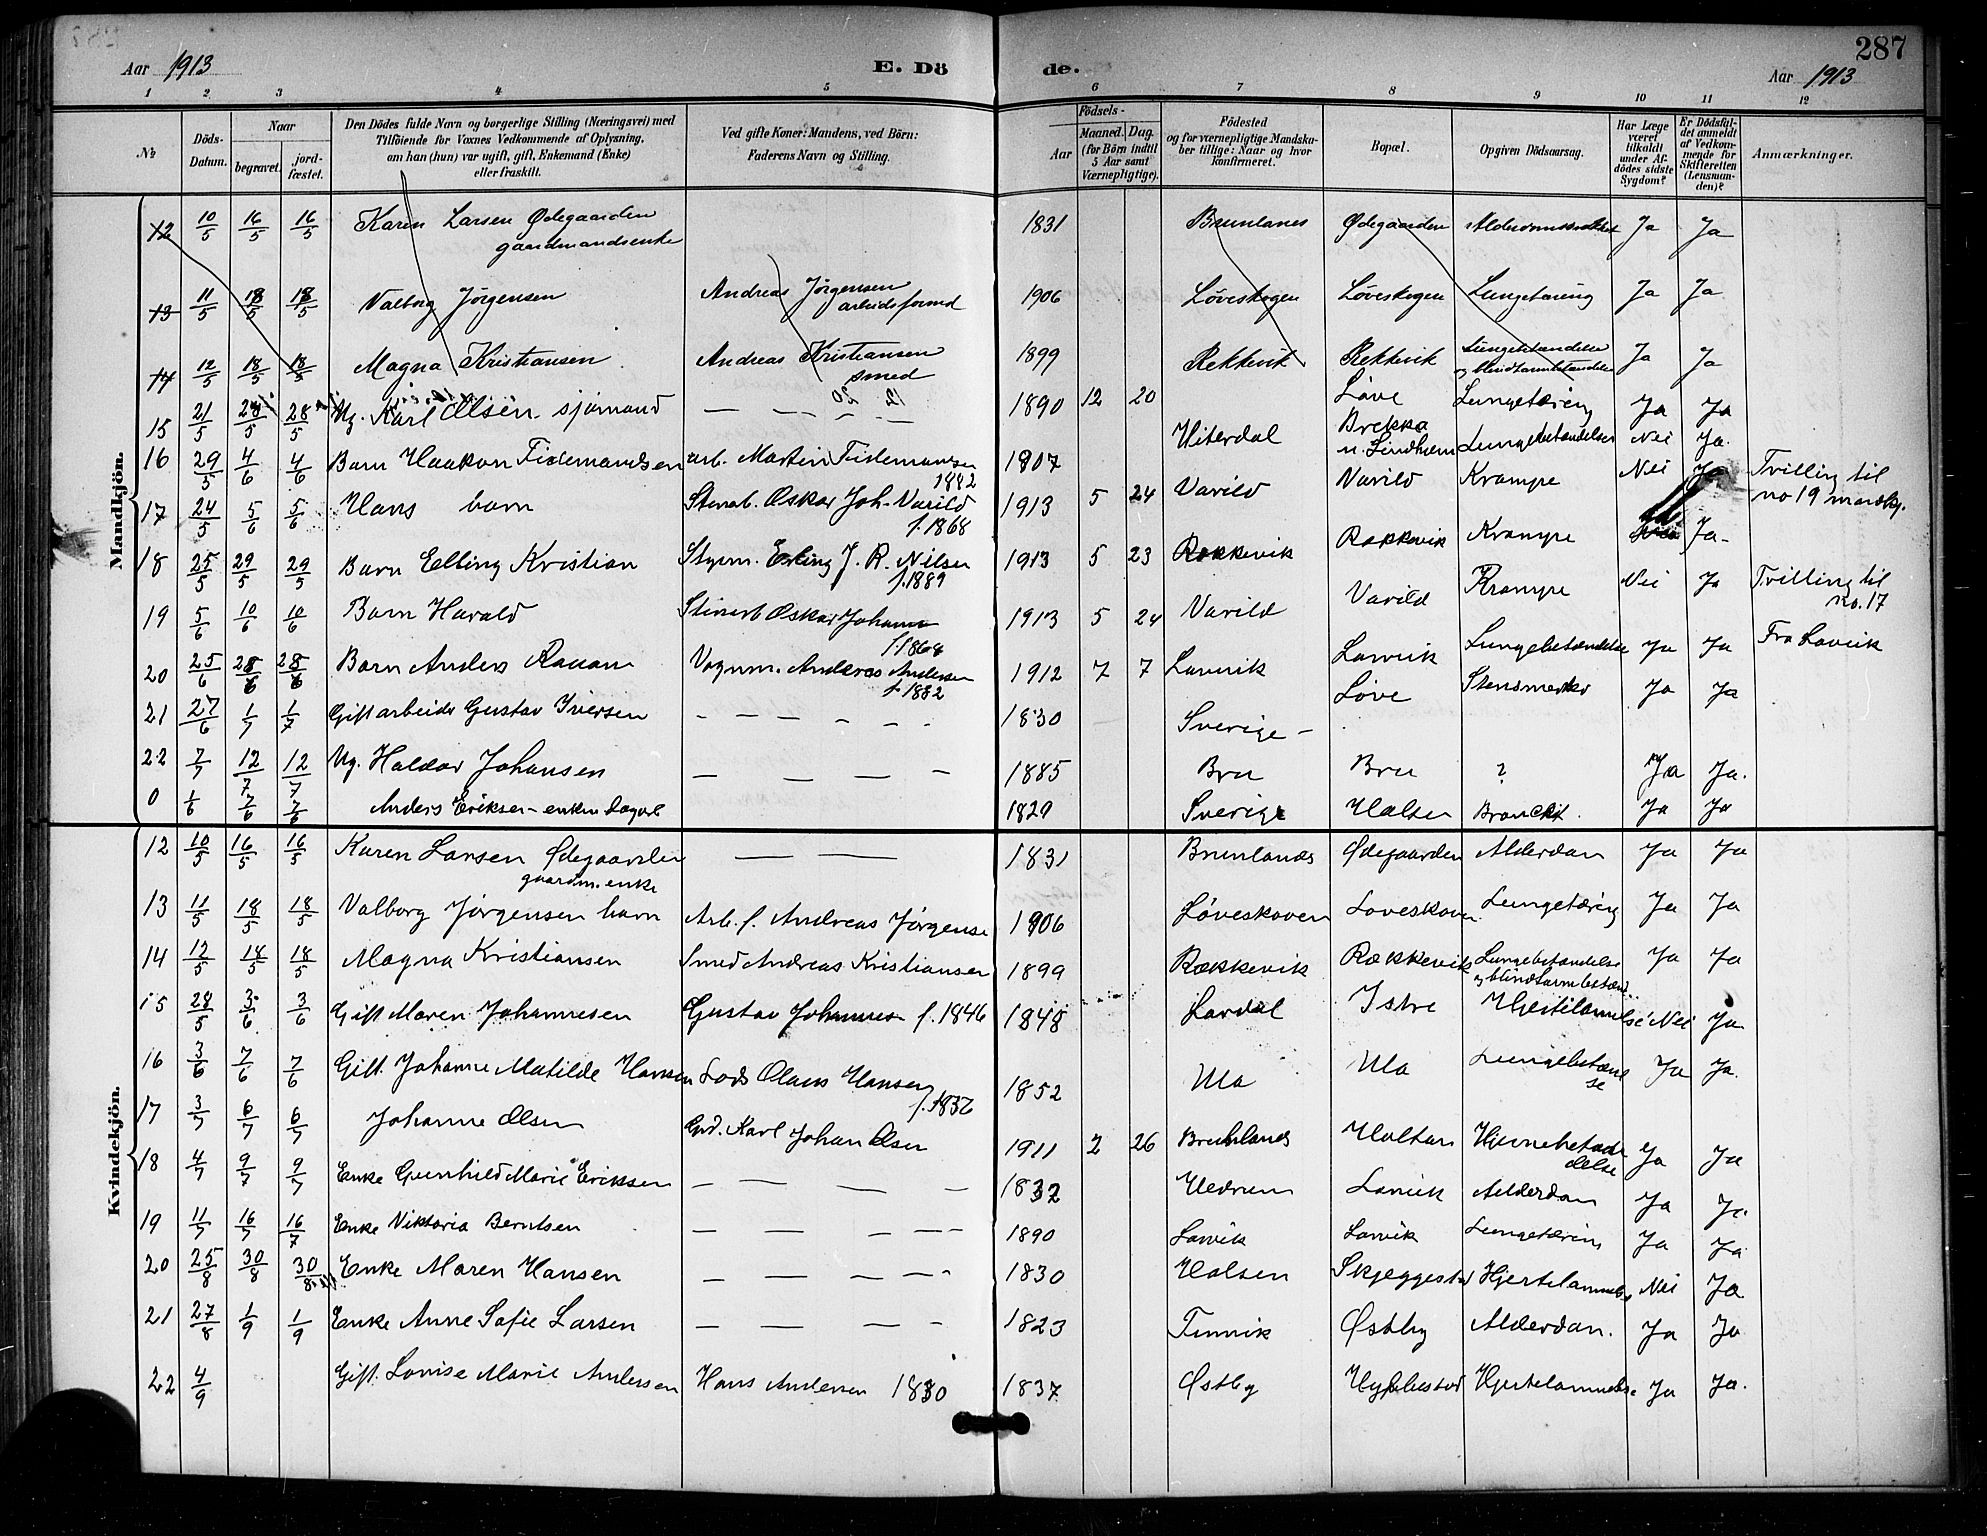 287
Aar 1913 E. Dö de. Aar 1913
1 2. 3 4 5 6 7 8 9 10 11 12
№
Döds-Datum.
Naar
begravet. jord-fæstet.
Den Dödes fulde Navn og borgerlige Stilling (Næringsvei) med Tilföiende for Voxnes Vedkommende af Oplysning, om han (hun) var ugift, gift, Enkemand (Enke) eller fraskilt.
Ved gifte Koner: Mandens, ved Börn: Faderens Navn og Stilling.
Födsels-
Aar Maaned. Dag. (for Börn indtil 5 Aar samt Værnepligtige).
Födested og for værnepligtige Mandskaber tillige: Naar og hvor konfirmeret.
Bopæl.
Opgiven Dödsaarsag.
Har Læge været tilkaldt under Afdödes sidste Sygdom?
Er Dödsfaldet anmeldt af Vedkommende for Skifteretten (Lensmanden)?
Anmærkninger.
Mandkjön.
12 10/5 16/5 16/5 Karen Larsen Ødegaarden gaardmandsenke 1831 Brunlanes Ødegaarden Ja Ja
13 11/5 18/5 18/5 Valborg Jörgensen Andreas Jörgensen arbeidsformd 1906 Löveskogen Löveskogen Lungetæring Ja Ja
14 12/5 18/5 18/5 Magna Kristiansen Andreas Kristiansen smed 1899 Rekkevik Rekkevik Lungebetændelse og blindtarmbetændelse Ja Ja
15 21/5 28/5 28/5 Ug. Karl Olsen sjömand — — — — 1890 12 20 Löve Lungetæring Ja Ja
16 29/5 4/6 4/6 Barn Haakon Fidemandsen arb. Martin Fidemansen 1882 1907 Hiterdal Brekka n. Lindholm Lungebetændelse Nei Ja.
17 24/5 5/6 5/6 Hans barn Stenarb. Oskar Joh. Varild f. 1868 1913 5 24 Varild Varild Krampe Nei Ja Tvilling til no 19 mandkj.
18 25/5 29/5 29/5 Barn Elling Kristian Styrm. Erling J. R. Nilsen f. 1889 1913 5 23 Rekkevik Rakkevik Krampe Ja-
19 5/6 10/6 10/6 Barn Harald Stenarb Oskar Johann f. 1868 1913 5 24 Varild Varild Krampe Nei Ja Tvilling til no. 17
20 25/6 28/6 28/6 Barn Anders Ravan Vognm. Anders Andersen f. 1882 1912 7 7 Larvik Larvik Lungebetændelse Ja Ja Fra Larvik
21 27/6 1/7 1/7 Gift arbeider Gustav Iversen — — — — — — 1830 Sverige — Löve Ja Ja
22 7/7 12/7 12/7 Ug. Haldor Johansen — — — — 1885 Bru Bru ? Ja Ja.
0 1/6 7/6 7/6 Anders Eriksen - enkem. dagarb 1829 Sverige Halsen Bronchit. Ja Ja
Kvindekjön.
12 10/5 16/5 16/5 Karen Larsen Ødegaarden gaardm. enke — — 1831 Brunlanes Ødegaarden Alderdom Ja Ja
13 11/5 18/5 18/5 Valborg Jörgensen barn Arb. f. Andreas Jörgense 1906 Löveskoven Loveskoven Lungetæring Ja Ja
14 12/5 18/5 18/5 Magna Kristiansen Smed Andreas Kristiansen 1899 Rækkevik Rækkevik Lungebetændelse og blindtarmbetænd. Ja Ja
15 28/5 3/6 3/6 Gift Maren Johannesen Gustav Johannes f. 1846 1848 Lardal Istre Hjertelammelse Nei Ja
16 3/6 7/6 7/6 Gift. Johanne Matilde Hansen Lods Olaus Hansen f. 1836 1852 Ula Ula Lungebetændelse Ja Ja.
17 3/7 6/7 6/7 Johanne Olsen Grd. Karl Johan Olsen 1911 2 26 Brunlanes Holtan Hjernebetændelse Ja Ja
18 4/7 9/7 9/7 Enke Gunhild Marie Eriksen — — — — 1832 Hedrum Larvik Alderdom Ja Ja.
19 11/7 16/7 16/7 Enke Viktoria Berntsen — — — — 1890 Larvik Larvik Lungetæring Ja Ja
20 25/8 30/8 30/8 Enke Maren Hansen — — — — — 1830 Halsen Skjeggestad Hjertelammelse Nei Ja
21 27/8 1/9 1/9 Enke Anne Sofie Larsen — — — — 1823 Tinvik Østby Alderdom. Ja Ja
22 4/9 Gift. Lovise Marie Andersen Hans Andersen 1830 1837 Østby Hybbestad Hjertelammelse Ja Ja.